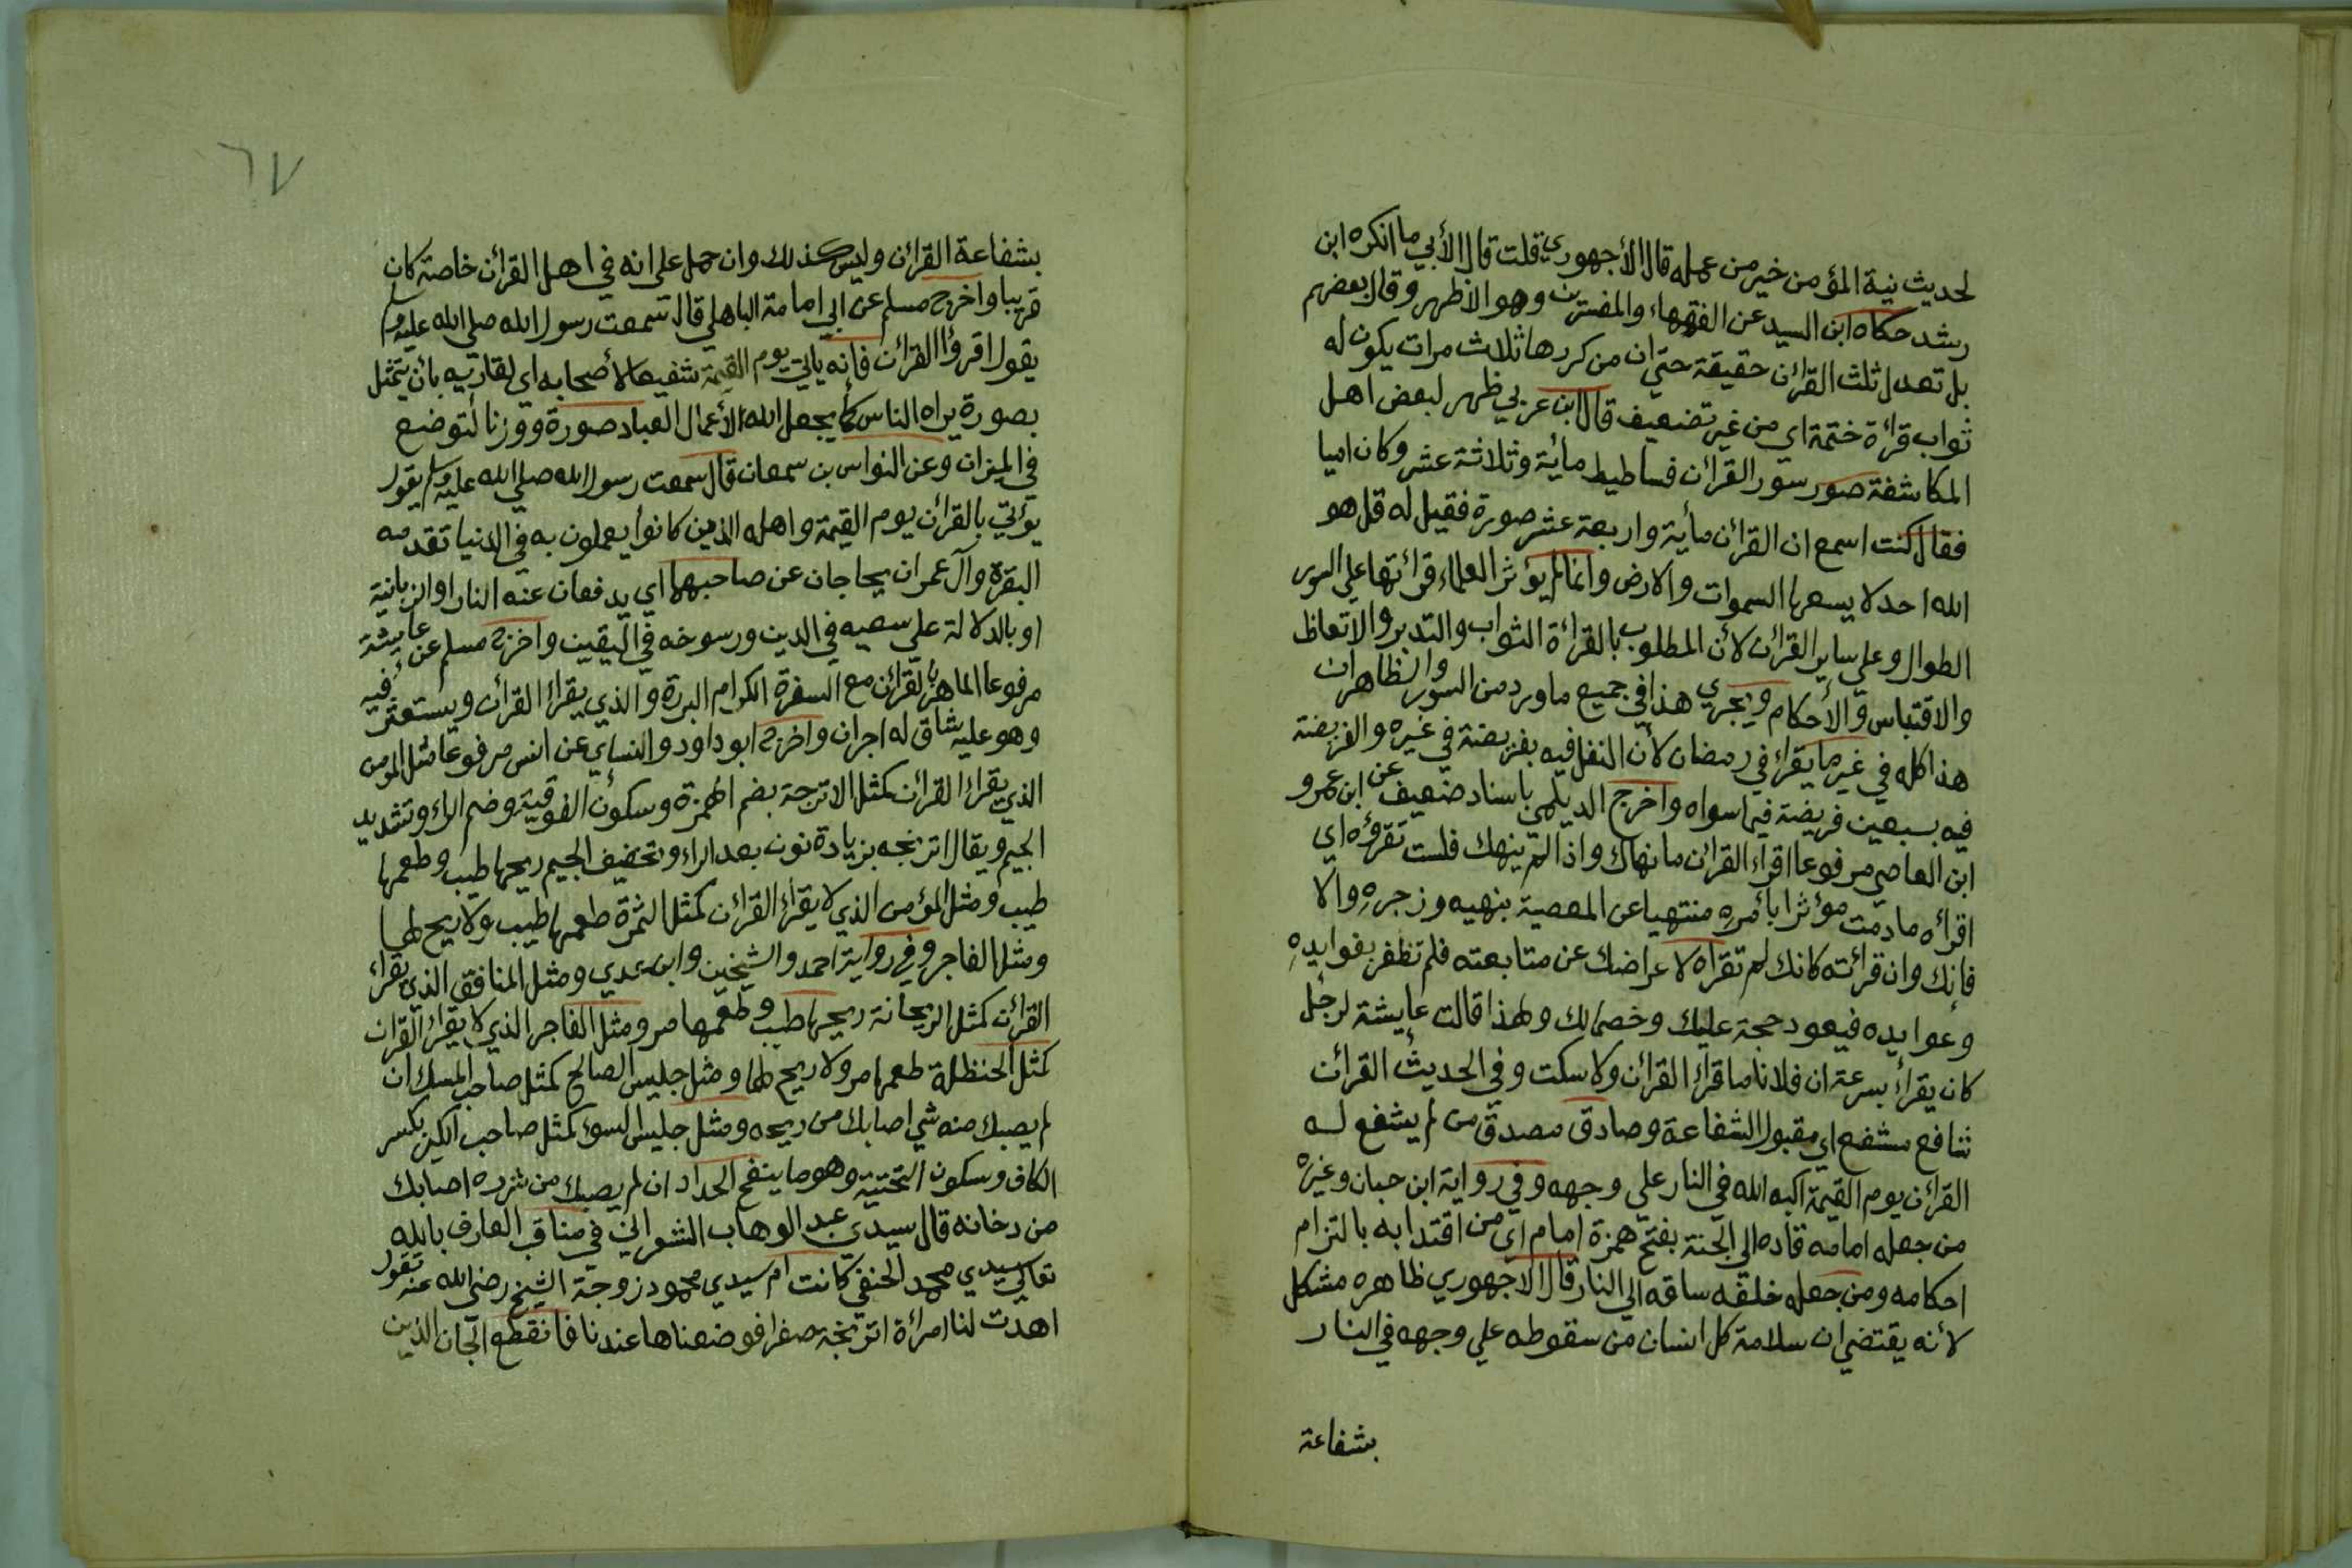 لحديث نية المؤمن خير من عمله قال الأجهوري قلت قال الأبي ما انكره ابن
رشد حكاه ابن السيد عن الفقهاء والمفسرين وهو الاظهر وقال بعضهم
بل تعدل ثلث القرائن حقيقة حتي ان من كررها ثلاث مرات يكون له
ثواب قرائة ختمة اي من غير تضعيف قال ابن عربي ظهر لبعض اهل
المكاشفة صور سور القرائن فساطيط مائية وثلاثة عشر وكان اميا
فقال كنت اسمع ان القرائن مأية واربعة عشر صورة فقيل له قل هو
الله احد لا يسعها السموات والارض وانما لم يؤثر العلماء قرائتها علي السور
الطوال وعلي ساير القرائن لأن المطلوب بالقرائة الثواب والتدبر والاتعاظ
والاقتباس والأحكام ويجري هذا في جميع ما ورد من السور والظاهر ان
هذا كله في غير ما يقراء في رمضان لأن النفل فيه بفريضة في غيره والفريضة
فيه بسبعين فريضة فيما سواه واخرج الديلمي باسناد ضعيف عن ابن عمرو
ابن العاصي مرفوعا اقراء القرائن ما نهاك واذا لم ينهك فلست تقرؤه اي
اقرأه ما دمت مؤثرا بأمره منتهيا عن المعصية بنهيه وزجره والا
فانك وان قرائته كانك لم تقراه لاعراضك عن متابعته فلم تظفر بفوايده
وعوايده فيعود حجة عليك وخصما لك ولهذا قالت عايشة لرجل
كان يقرأ بسرعة ان فلانا ما قرأ القرائن ولا سكت وفي الحديث القرائن
شافع مشفع اي مقبول الشفاعة وصادق مصدق من لم يشفع له
القرائن يوم القيمة اكبه الله في النار علي وجهه وفي رواية ابن حبان وغيره
من جعله امامه قاده الي الجنة بفتح همزة امام اي من اقتدا به بالتزام
احكامه ومن جعله خلفه ساقه الي النار قال الاجهوري ظاهره مشكل
لأنه يقتضي ان سلامة كل انسان من سقوطه علي وجهه في النار
بشفاعة
٦٧
بشفاعة القرائن وليس كذلك وان حمل علي انه في اهل القرائن خاصة كان
قريبا واخرج مسلم عن ابي امامة الباهلي قال سمعت رسول الله صلي الله عليه وسلم
يقول اقرؤا القرائن فانه ياتي يوم القيمة شفيعا لأصحابه اي لقاريه بأن يتمثل
بصورة يراه الناس كما يجعل الله الأعمال العباد صورة ووزنا لتوضع
في الميزان وعن النواس بن سمعان قال سمعت رسول الله صلي الله عليه وسلم يقول
يؤتي بالقرائن يوم القيمة واهله الذين كانوا يعملون به في الدنيا تقدمه
البقرة وآل عمران يحاجان عن صاحبهما اي يدفعان عنه النار او الزبانية
او بالدلالة علي سعيه في الدين ورسوخه في اليقين واخرج مسلم عن عايشة
مرفوعا الماهر بالقرائن مع السفرة الكرام البررة والذي يقراء القرائن ويستعثر فيه
وهو عليه شاق له اجران واخرج ابو داود والنساي عن انس مرفوعا مثل المومن
الذي يقراء القرائن كمثل الاترجة بضم الهمزة وسكون الفوقية وضم الراء وتشديد
الجيم ويقال اترنجه بزيادة نون بعد الراء وتخفيف الجيم ريحها طيب وطعمها
طيب ومثل المؤمن الذي لا يقراء القرائن كمثل الثمرة طعمها طيب ولا ريح لها
ومثل الفاجر وفي رواية احمد والشيخين وابن عدي ومثل المنافق الذي يقراء
القرائن كمثل الريحانة ريحها طيب وطعمها مر ومثل الفاجر الذي لا يقراء القران
كمثل الحنظلة طعمها مر ولا ريح لها ومثل جليس الصالح كمثل صاحب المسك ان
لم يصبك منه شي اصابك من ريحه ومثل جليس السوء كمثل صاحب الكير بكسر
الكاف وسكون التحتية وهو ما ينفخ الحداد ان لم يصبك من شرره اصابك
من دخانه قال سيدي عبد الوهاب الشعراني في مناقب العارف بالله
تعالي سيدي محمد الحنفي كانت ام سيدي محمود زوجة الشيخ رضي الله عنه تقول
اهدت لنا امرأة اترنجة صفرا فوضعناها عندنا فانقطع الجان الذين